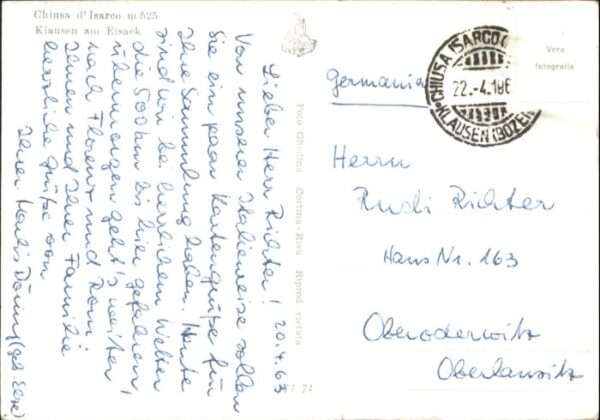 Chiusa d'Isarco m 525
Klausen am Eisack
20.4.63
Lieber Herr Richter!
Von unserer Italienreise sollen
Sie ein paar Kartengrüße für
Ihre Sammlung haben. Heute
sind wir bei herrlichem Wetter
die 500 km bis hier gefahren,
übermorgen geht's weiter
nach Florenz und Rom.
Ihnen und Ihrer Familie
herzliche Grüße von
Ihrer
Foto Ghedina Cortina - Riva Riprod. vietata
Vera
fotografia
CHIUSA ISARCO
22.-4.196
KLAUSEN (BOZEN
Germania
Herrn
Rudi Richter
Haus Nr. 163
Oberoderwitz
Oberlausitz